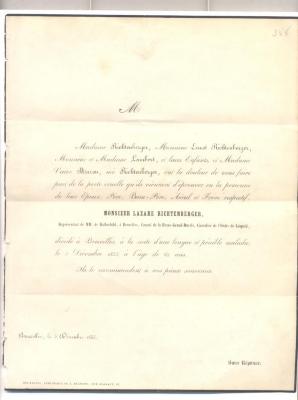 M
Madame Richtenberger, Monsieur Ernest Richtenberger,
Monsieur et Madame Lambert, et leurs Enfants, et Madame
Veuve née Richtenberger, ont la douleur de vous faire
part de la perte cruelle qu'ils viennent d'éprouver en la personne
de leur Epoux, Père, Beau-Père, Aïeul et Frère respectif,
MONSIEUR LAZARE RICHTENBERGER,
Représentant de MM. de Rothschild, à Bruxelles, Consul de la Hesse-Grand-Ducale, Chevalier de l'Ordre de Léopold,
décédé à Bruxelles, à la suite d'une longue et pénible maladie,
le Décembre à l'âge de ans.
Ils le recommandent à vos pieux souvenirs.
Bruxelles, le Décembre
Une Réponse.
BRUXELLES, IMPRIMERIE DE